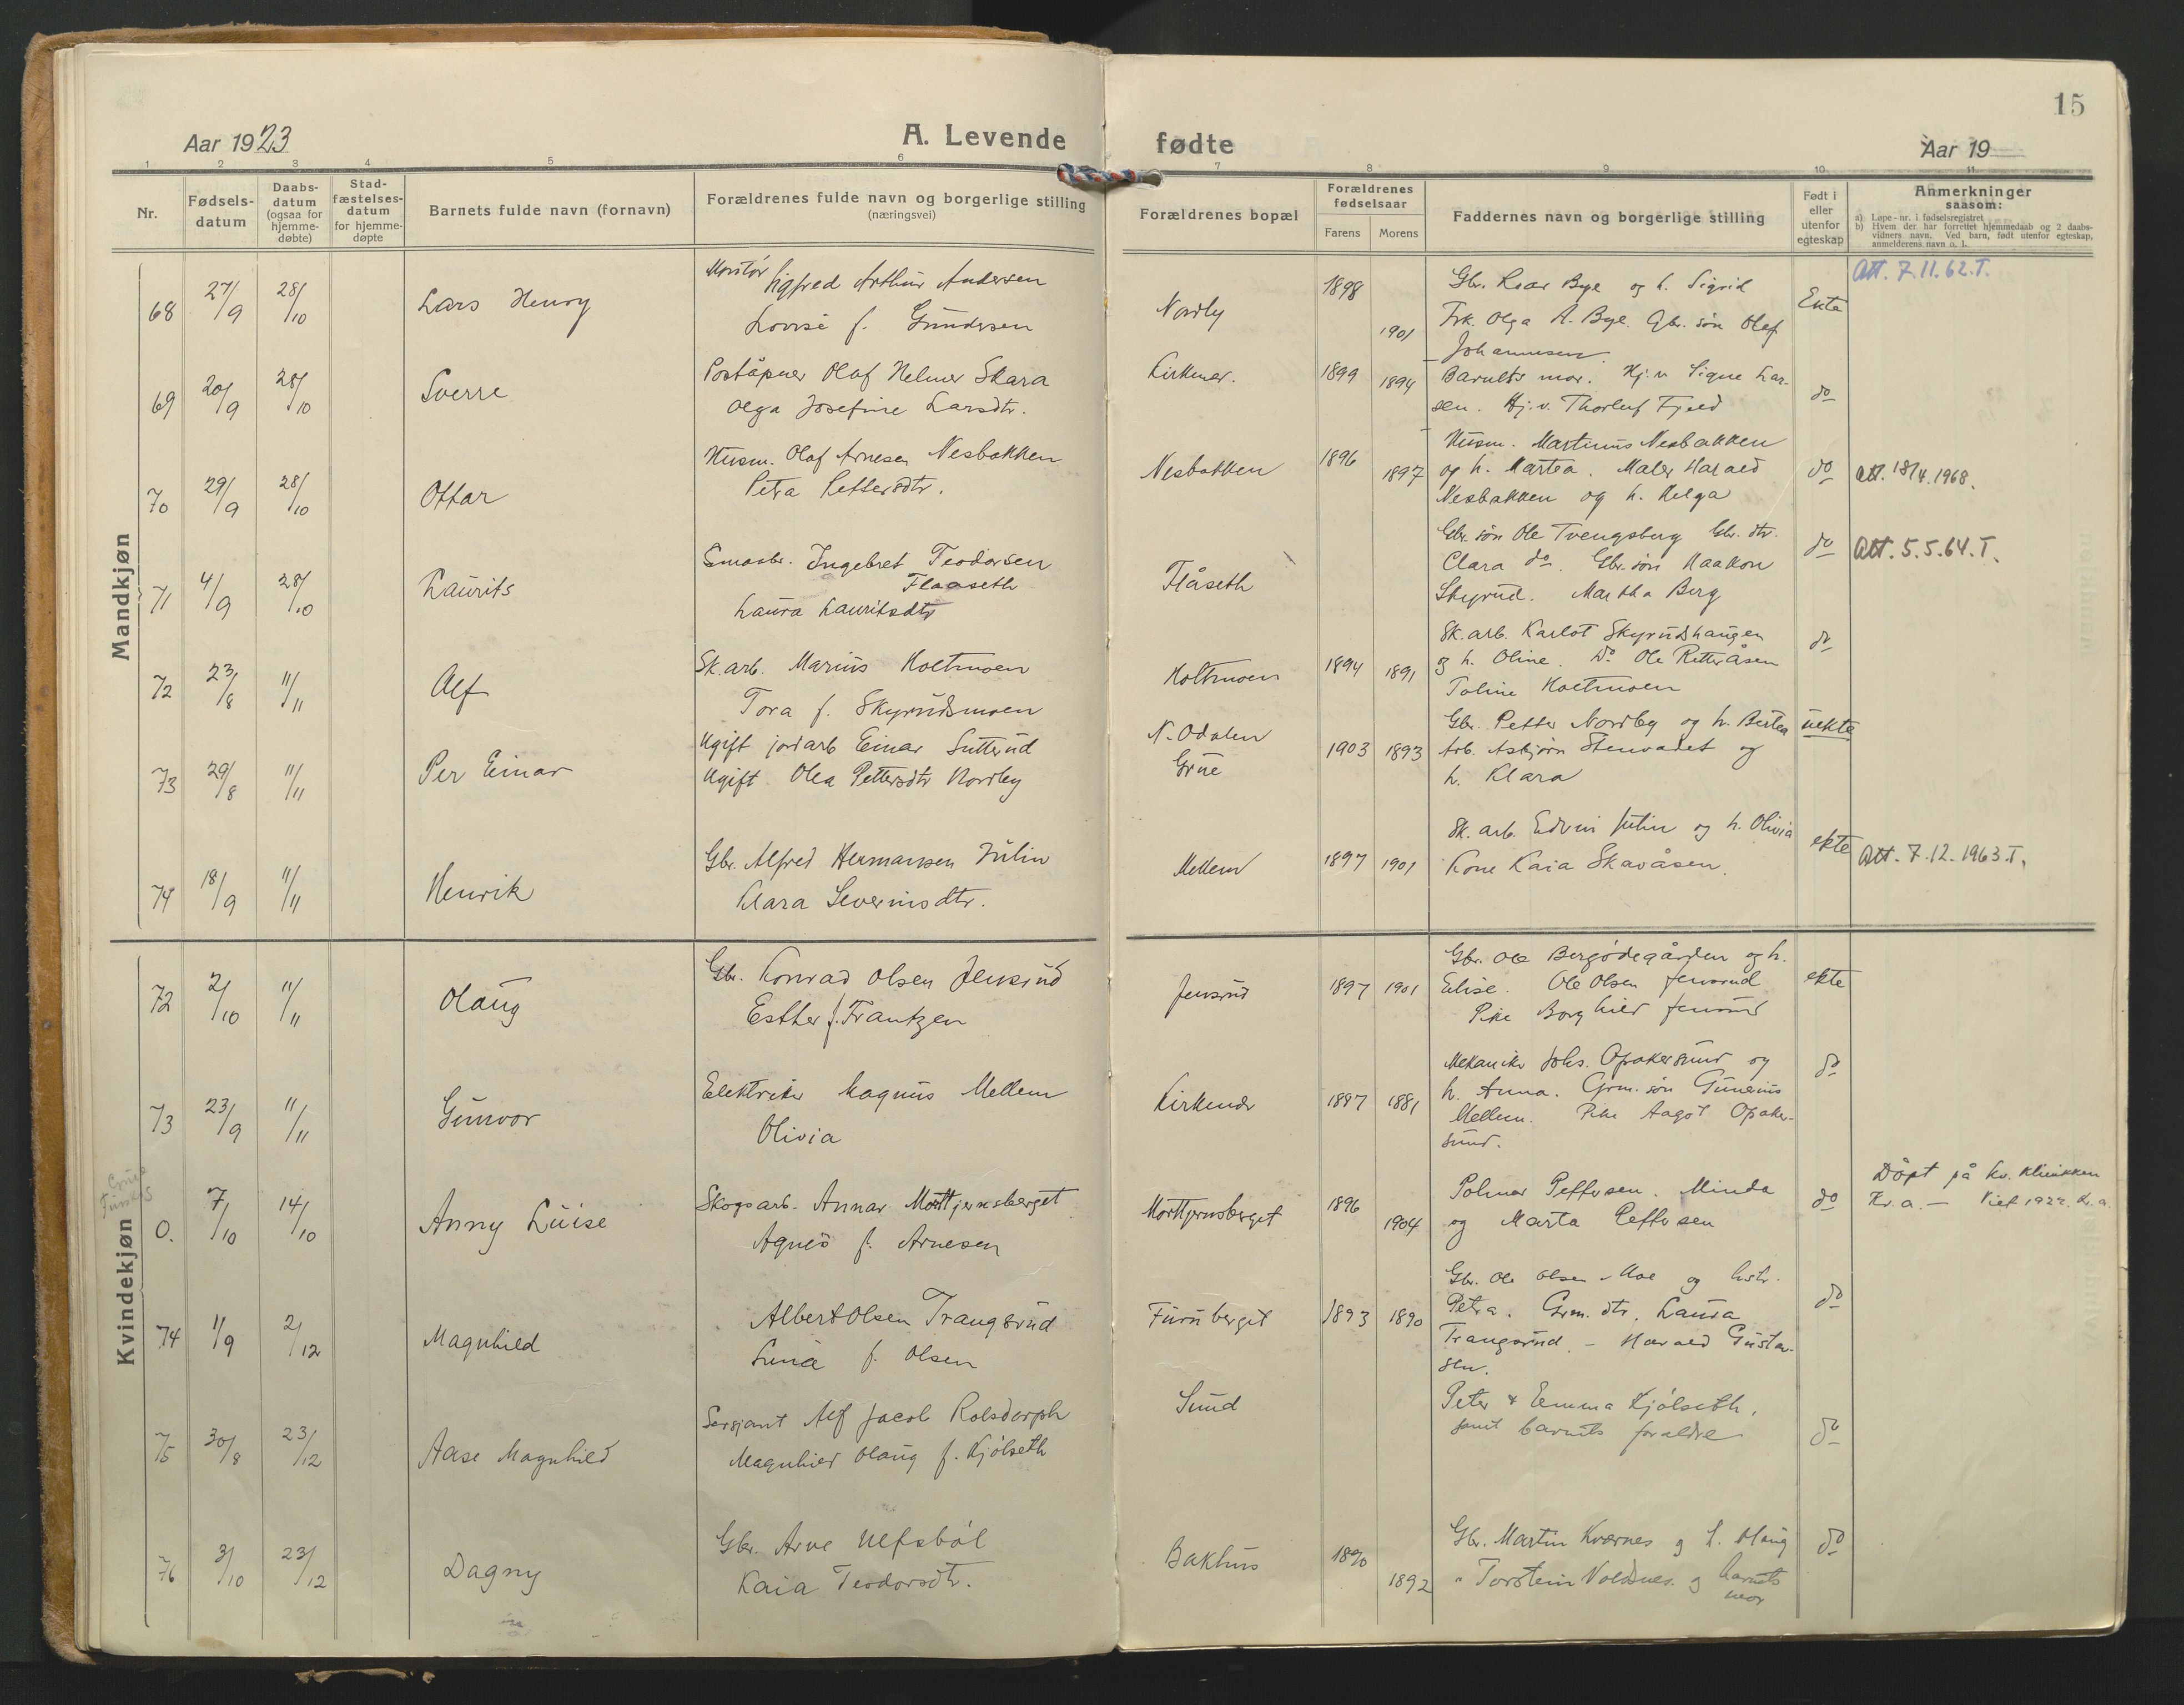 15
Aar 1923
A. Levende fødte
Aar 19
1 2 3 4 5 6 7 8 9 10 11
Nr.
Fødsels-
datum
Daabs-
datum
(ogsaa for
hjemme-
døbte)
Stad-
fæstelses-
datum
for hjemme-
døpte
Barnets fulde navn (fornavn)
Forældrenes fulde navn og borgerlige stilling
(næringsvei)
Forældrenes bopæl
Forældrenes
fødselsaar
Farens Morens
Faddernes navn og borgerlige stilling
Født i
eller
utenfor
egteskap
Anmerkninger
saasom:
a) Løpe-nr. i fødselsregistret
b) Hvem der har forrettet hjemmedaab og 2 daabs-
vidners navn. Ved barn, født utenfor egteskap,
anmelderens navn o. l.
Mandkjøn
68 27/9 28/10 Lars Henry
Montør Sigfred Arthur Andersen
Lovise f. Gundersen
Nordby 1898 1901
Gbr. Roar Bye og h. Sigrid
Frk. Olga A. Bye. Gbr. søn Olaf
Johannesen.
Ekte
Att. 7.11.62.T.
69 20/9 28/10 Sverre
Poståpner Olaf Helmer Skara
Olga Josefine Larsdtr.
Kirkenær. 1899 1894
Barnets mor. Hj.v. Signe Lar-
sen. Hj.v. Thorleif Fjeld
do
70 29/9 28/10 Ottar
Husm. Olaf Arnesen Nesbakken
Petra Pettersdtr.
Nesbakken 1896 1897
Husm. Martinus Nesbakken
og h. Martea. Maler Harald
Nesbakken og h. Helga
do
Att. 18/4.1968.
71 4/9 28/10 Laurits
Smaabr. Ingebret Teodorsen
Flaaseth
Laura Lauritsdtr
Flåseth
Gbr. søn Ole Tvengsberg Gbr. dtr.
Clara do. Gbr. søn Haakon
Skyrud. Martha Berg
do
Att. 5.5.64.T.
72 23/8 11/11 Alf
Sk.arb. Marius Holtmoen
Tora f. Skyrudsmoen
Holtmoen 1894 1891
Sk.arb. Karlot Skyrudshaugen
og h. Oline. Do Ole Retteråsen
Toline Holtmoen
do
73 29/8 11/11 Per Einar
Ugift jordarb Einar Sutterud
Ugift Olea Pettersdtr Nordby
N. Odalen
Grue
1903 1893
Gbr. Petter Nordby og h. Bertea
Arb. Asbjørn Stenvadet og
h. Klara
uekte
74 18/9 11/11 Henrik
Gbr. Alfred Hermansen Julin
Klara Severinsdtr.
Mellem 1897 1901
Sk. arb. Edvin Julin og h. Olivia
Kone Kaia Skavåsen.
ekte
Att. 7.12.1963.T.
Kvindekjøn
72 2/10 11/11 Olaug
Gbr. Konrad Olsen Jensrud
Esther f. Frantzen
Jensrud 1897 1901
Gbr. Ole Bergødegården og h.
Elise. Ole Olsen Jensrud
Pike Borghild Jensrud
ekte
73 23/9 11/11 Gunvor
Elektriker Magnus Mellem
Olivia
Kirkenær 1887 1881
Mekaniker Johs. Opakersund og
h. Anna. Grm. søn Gunerius
Mellem. Pike Aagot Opaker-
sund.
do
0. 7/10 14/10 Anny Luise
Skogsarb. Annar Morttjernsberget
Agnes f. Arnesen
Morttjernsberget 1896 1904
Polmar Pettersen. Minda
og Marta Pettersen
do
Döpt på kv. klinikken
Kr.a. — Viet 1922. Kr.a.
74 1/9 2/12 Magnhild
Albert Olsen Trangsrud
f. Olsen
Furuberget 1893 1890
Gbr. Ole Olsen Moe og hstr.
Petra. Grm. dtr. Laura
Trangsrud. - Harald Gustav-
sen.
do
75 30/8 23/12 Aase Magnhild
Sersjant Alf Jacob Rolsdorph
Magnhild Olaug f. Kjölseth
Sund
Peter & Emma Kjölseth,
samt barnets foraldre
do
76 3/10 23/12 Dagny
Gbr. Arve Ulfsböl
Kaia Teodorsdtr.
Bakhus 1890 1892
Gbr. Martin Kværnes og h. Olaug
" Torstein Voldnes. og barnets
mor
do